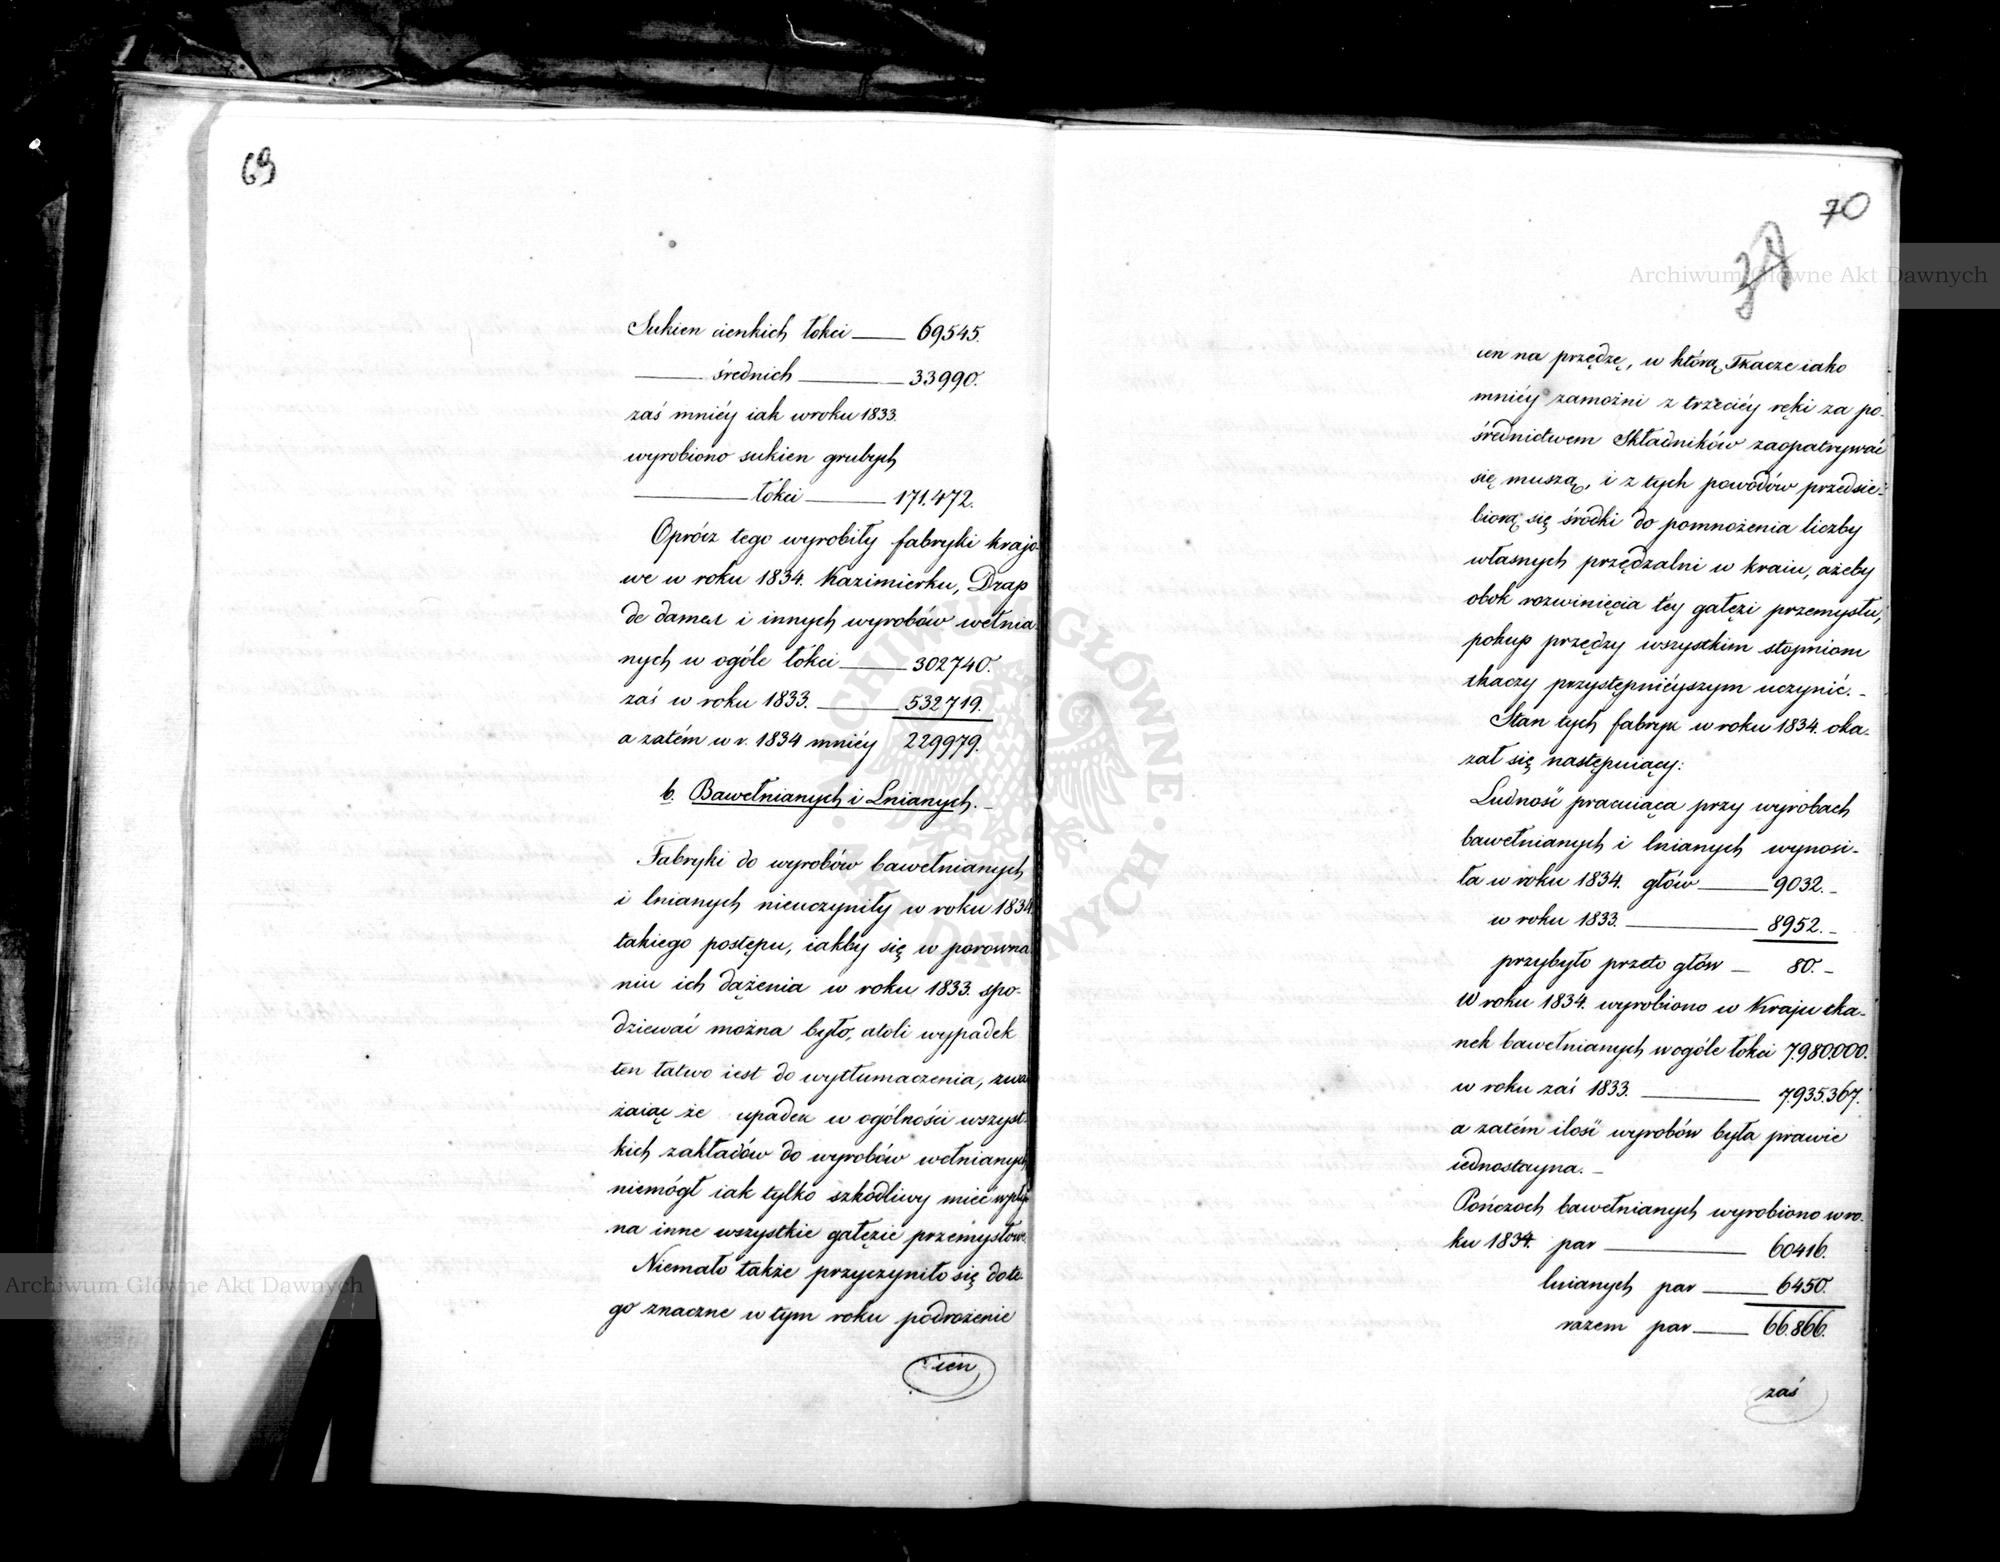 69
Sukien cienkich łokci —— 69545.
—— średnich —— 33990.
zaś mniéy iak w roku 1833.
wyrobiono sukien grubych
—— łokci —— 171.472.
Oprócz tego wyrobiły fabryki krajo-
we w roku 1834. Kazimierku, Drap
de dames i innych wyrobów wełnia-
nych w ogóle łokci —— 302740.
zaś w roku 1833. —— 532719.
a zatém w r. 1834 mniéy 229979.
b. Bawełnianych i Lnianych. –
Fabryki do wyrobów bawełnianych
i lnianych nieuczyniły w roku 1834
takiego postępu, iakby się w porowna
niu ich dążenia w roku 1833. spo-
dziewać można było, atoli wypadek
ten łatwo iest do wytłumaczenia, zwa
żaiąc że upadek w ogólności wszyst-
kich zakładów do wyrobów wełnianych
niemógł iak tylko szkodliwy mieć wpływ
na inne wszystkie gałęzie przemysłowe.
Niemało także przyczyniło się do te-
go znaczne w tym roku podrożenie
cen
70
cen na przędzę, w którą Tkacze iako
mniéy zamożni z trzeciéy ręki za po-
średnictwem Składników zaopatrywać
się muszą, i z tych powodów przedsię-
biorą się środki do pomnożenia liczby
własnych przędzalni w kraiu, ażeby
obok rozwinięcia téy gałęzi przemysłu,
pokup przędzy wszystkim stopniom
tkaczy przystępniéyszym uczynić. –
Stan tych fabryk w roku 1834. oka-
zał się następuiący:
Ludność pracuiąca przy wyrobach
bawełnianych i lnianych wynosi-
ła w roku 1834. głów —— 9032. –
w roku 1833. —— 8952. –
przybyło przeto głów — 80. –
W roku 1834. wyrobiono w Kraju tka-
nek bawełnianych w ogóle łokci 7.980.000.
w roku zaś 1833. —— 7.935.367.
a zatém ilość wyrobów była prawie
iednostayna. –
Pończoch bawełnianych wyrobiono w ro-
ku 1834. par —— 60416.
lnianych par —— 6450.
razem par —— 66.866.
zaś
Archiwum Główne Akt Dawnych
Archiwum Główne Akt Dawnych
ARCHIWUM GŁÓWNE · AKT DAWNYCH ·